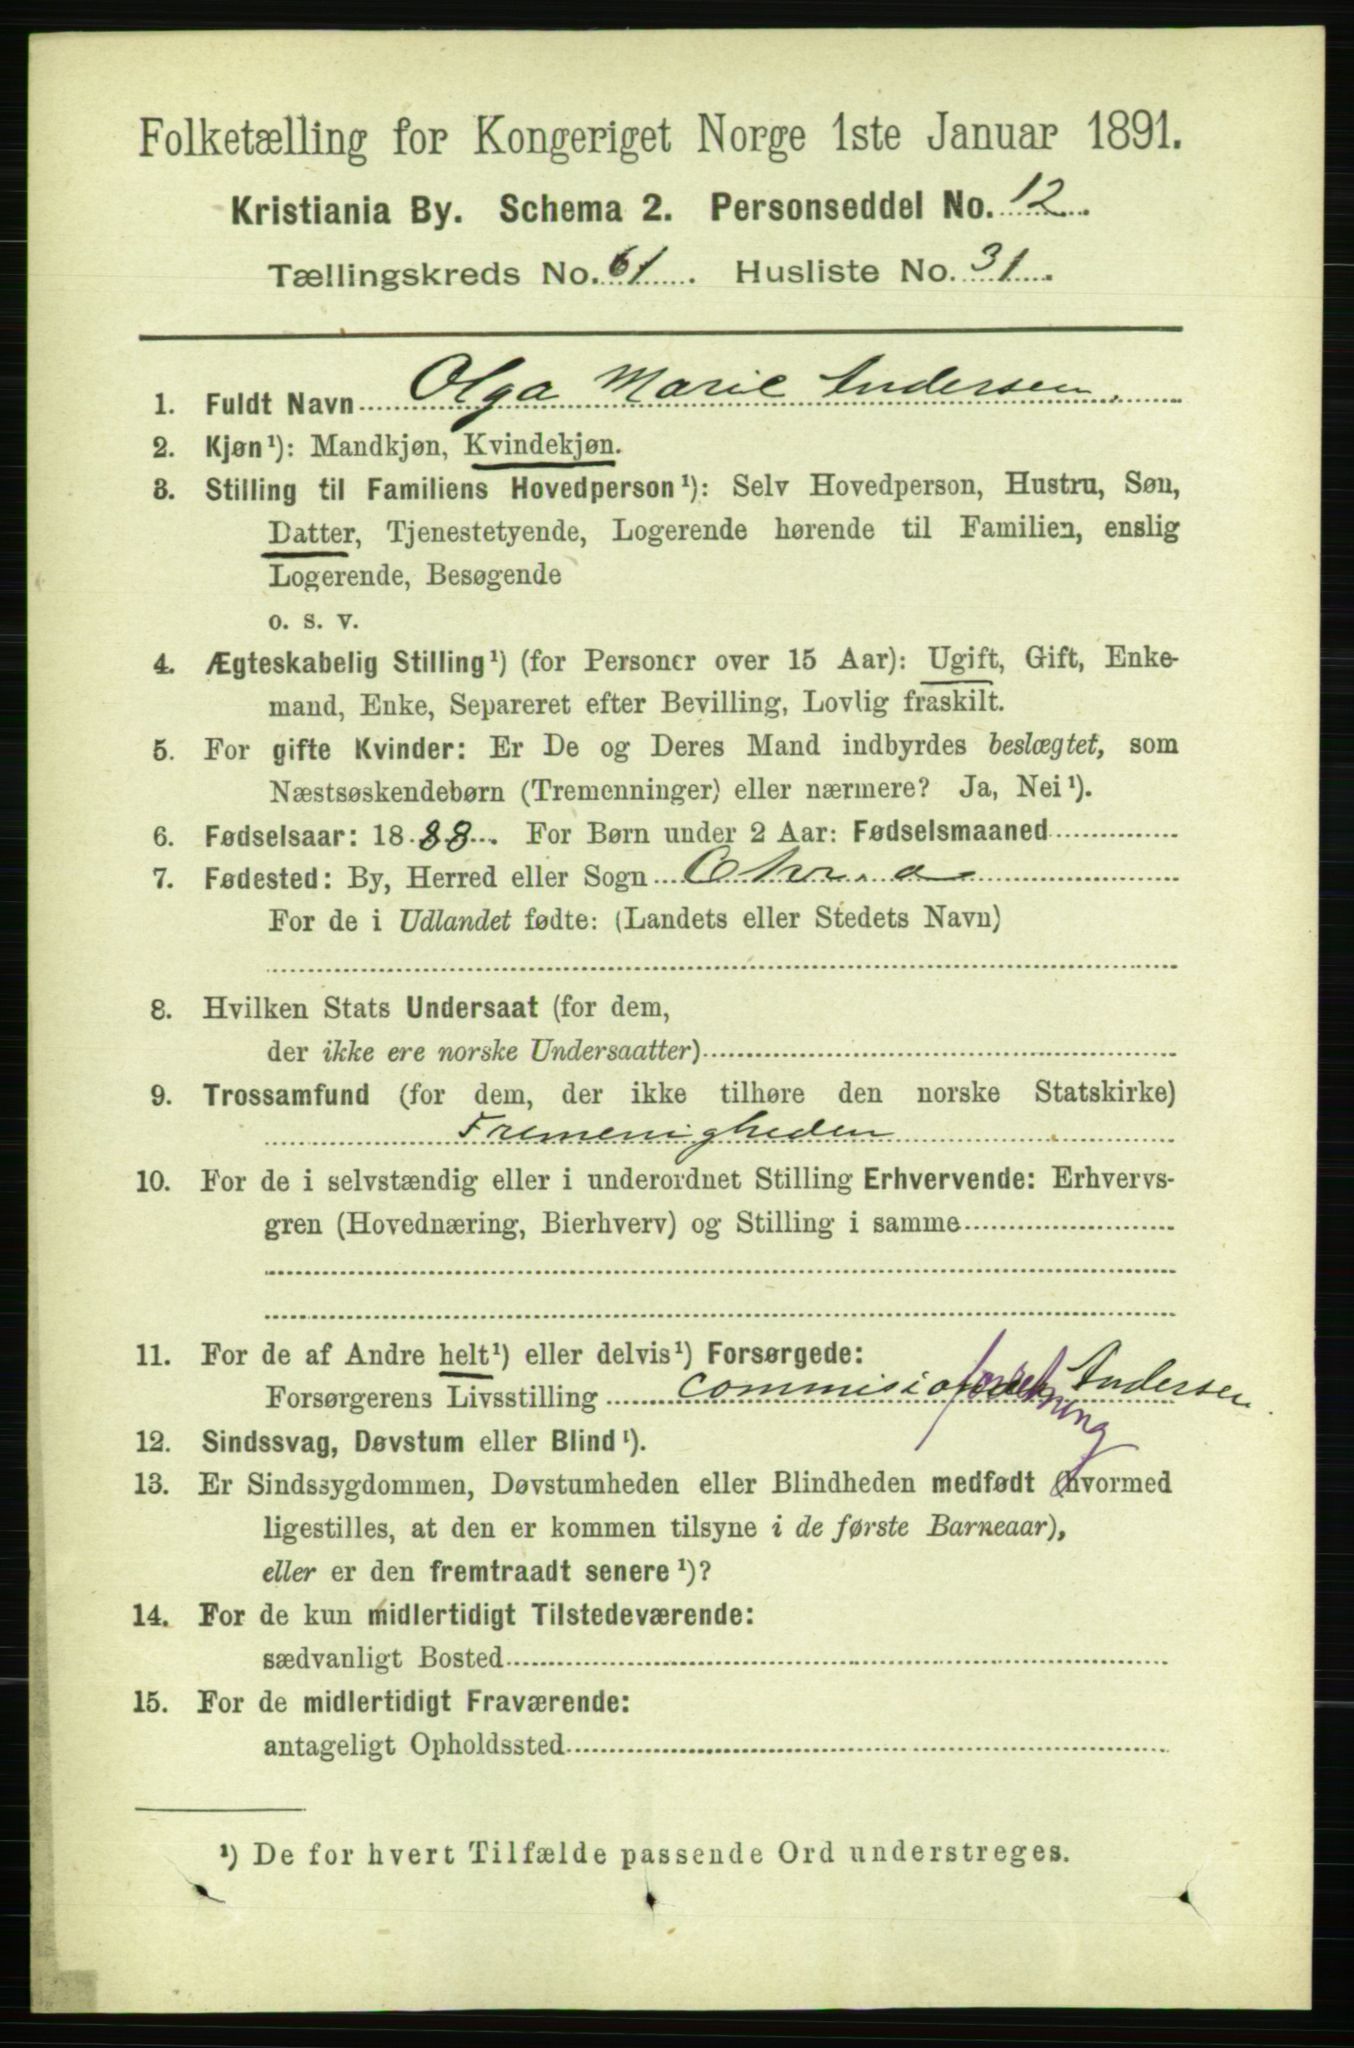 Folketælling for Kongeriget Norge 1ste Januar 1891.
Kristiania By. Schema 2. Personseddel No. 12
Tællingskreds No. 61. Husliste No. 31.
1. Fuldt Navn Olga Marie Andersen.
2. Kjøn¹): Mandkjøn, Kvindekjøn.
3. Stilling til Familiens Hovedperson¹): Selv Hovedperson, Hustru, Søn,
Datter, Tjenestetyende, Logerende hørende til Familien, enslig
Logerende, Besøgende
o. s. v.
4. Ægteskabelig Stilling¹) (for Personer over 15 Aar): Ugift, Gift, Enke-
mand, Enke, Separeret efter Bevilling, Lovlig fraskilt.
5. For gifte Kvinder: Er De og Deres Mand indbyrdes beslægtet, som
Næstsøskendebørn (Tremenninger) eller nærmere? Ja, Nei¹).
6. Fødselsaar: 1888. For Børn under 2 Aar: Fødselsmaaned
7. Fødested: By, Herred eller Sogn Chr.a
For de i Udlandet fødte: (Landets eller Stedets Navn)
8. Hvilken Stats Undersaat (for dem,
der ikke ere norske Undersaatter)
9. Trossamfund (for dem, der ikke tilhøre den norske Statskirke)
Fremenigheden
10. For de i selvstændig eller i underordnet Stilling Erhvervende: Erhvervs-
gren (Hovednæring, Bierhverv) og Stilling i samme
11. For de af Andre helt¹) eller delvis¹) Forsørgede:
Forsørgerens Livsstilling Andersen
12. Sindssvag, Døvstum eller Blind¹).
13. Er Sindssygdommen, Døvstumheden eller Blindheden medfødt (hvormed
ligestilles, at den er kommen tilsyne i de første Barneaar),
eller er den fremtraadt senere¹)?
14. For de kun midlertidigt Tilstedeværende:
sædvanligt Bosted
15. For de midlertidigt Fraværende:
antageligt Opholdssted
¹) De for hvert Tilfælde passende Ord understreges.